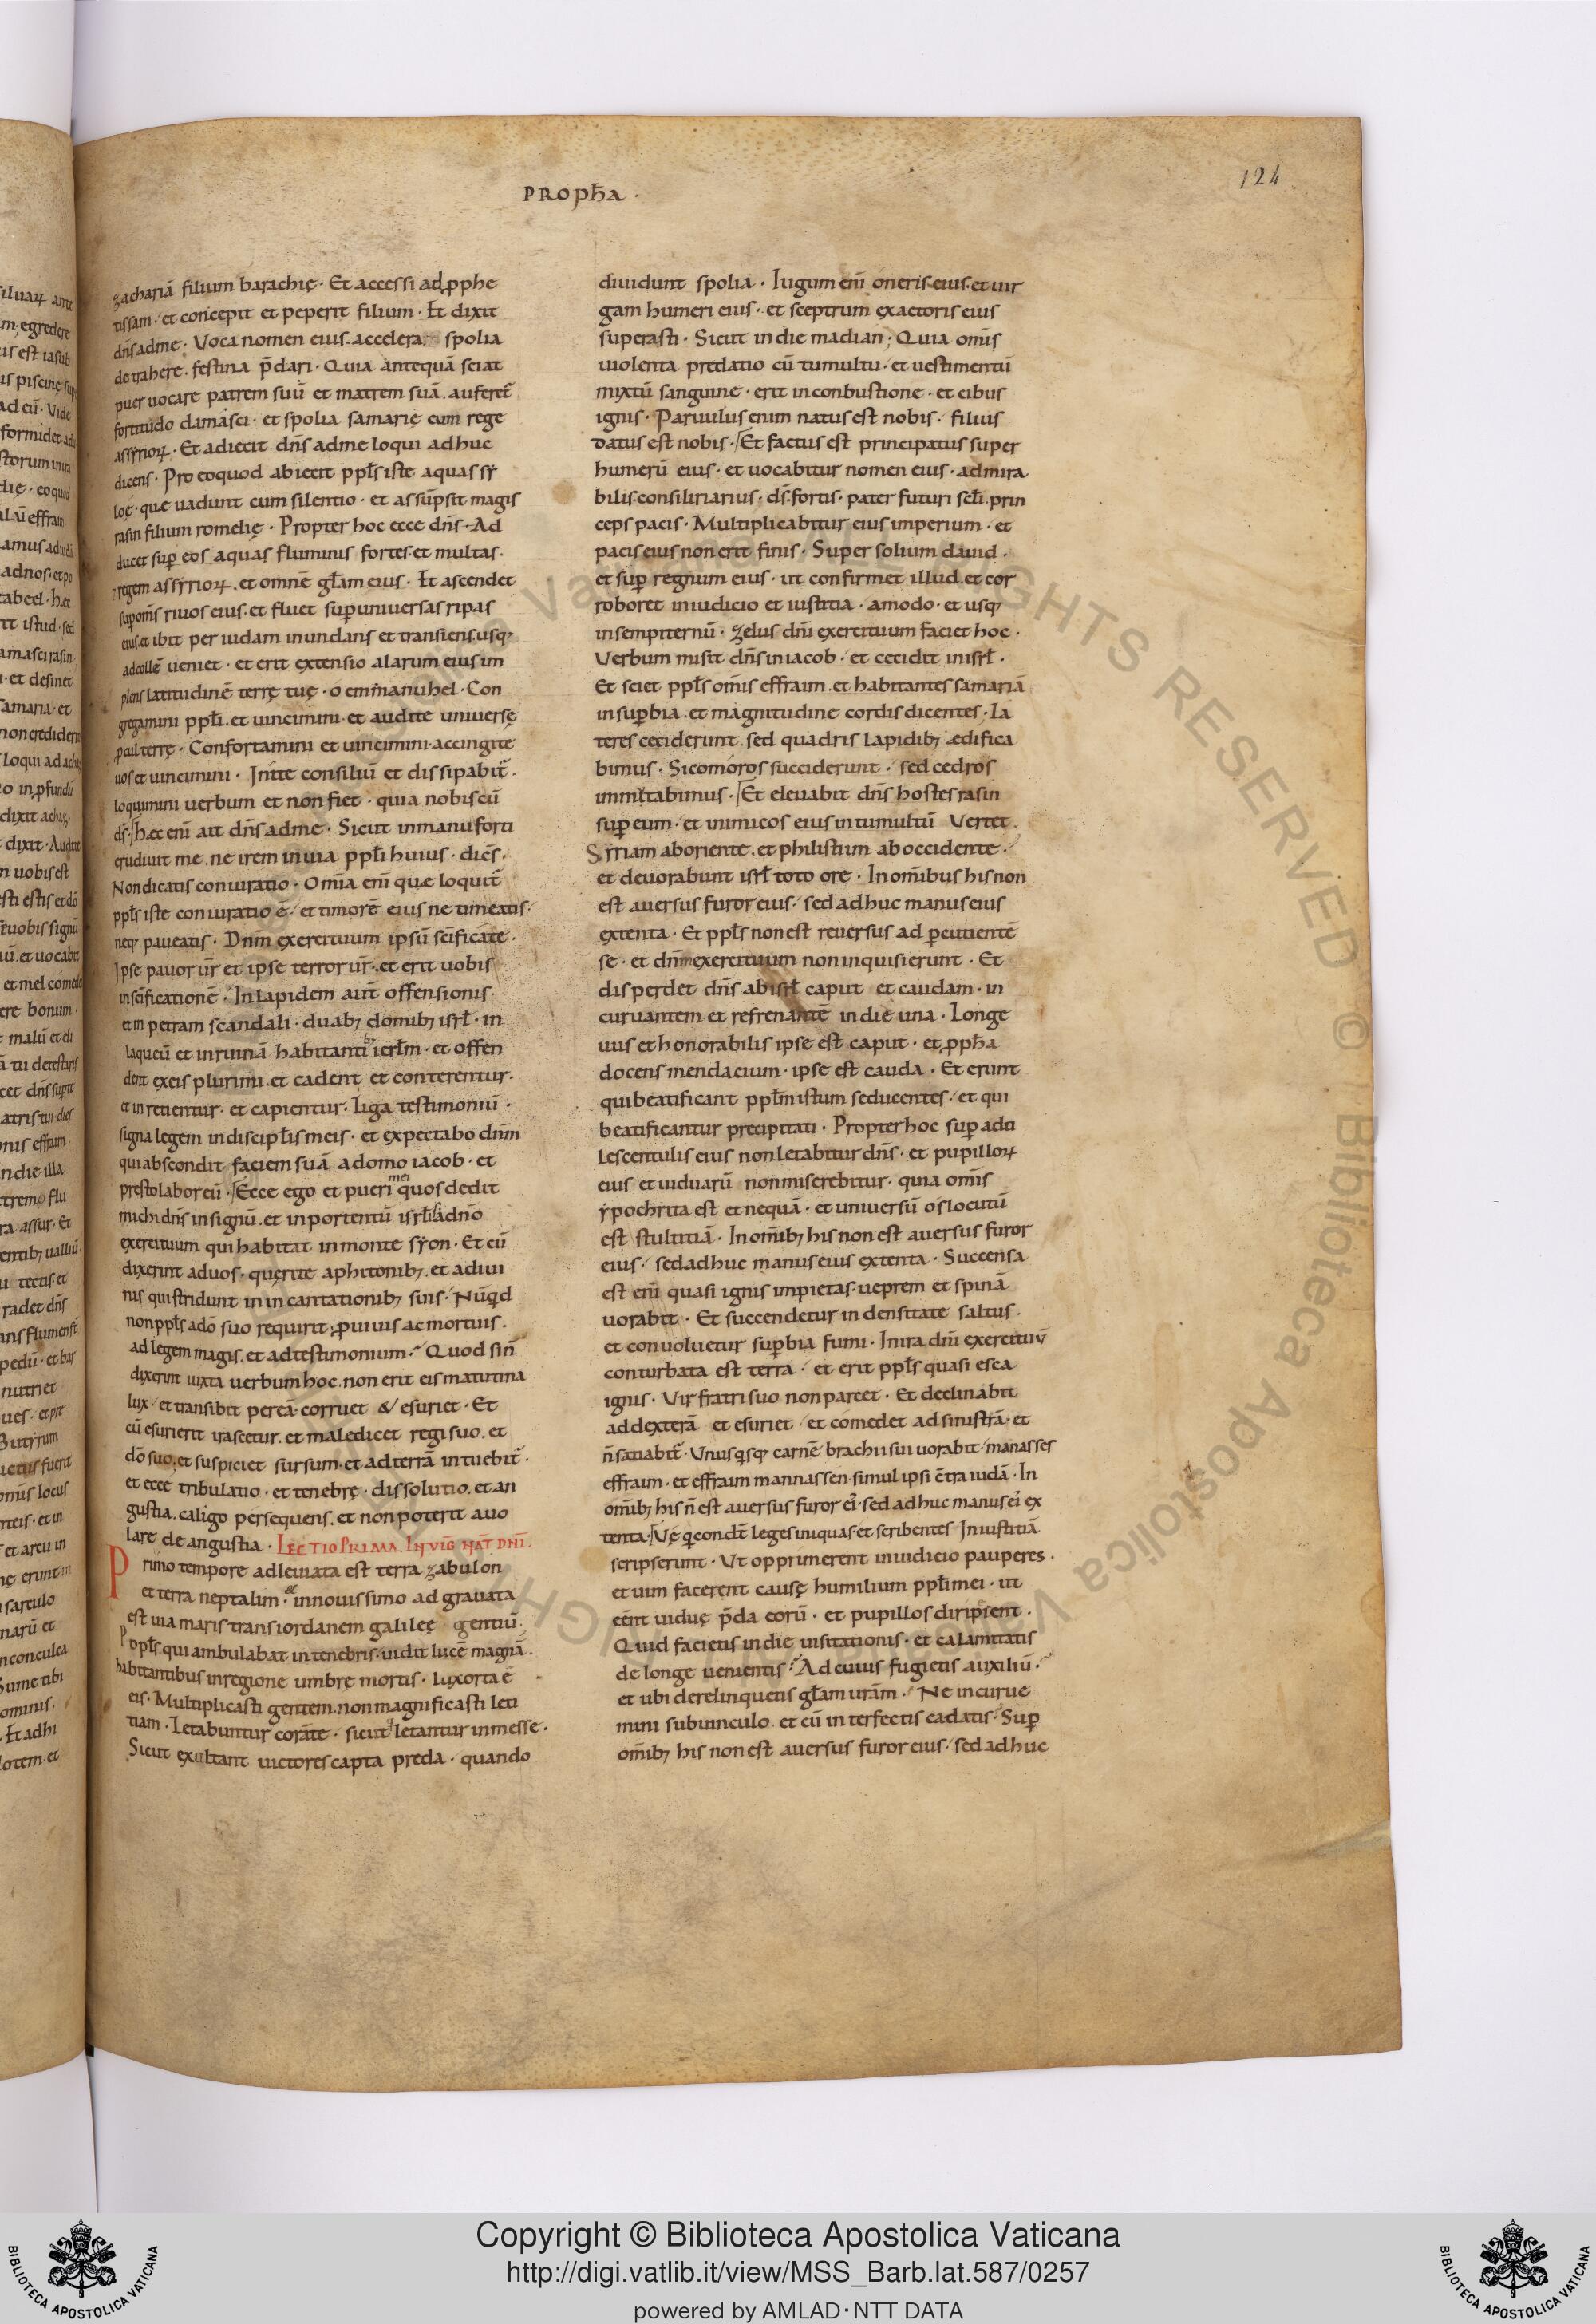 PROPħA ·
124
zachariā filium barachię · Et accessi ad ꝓphe
tissam · et concepit et peperit filium · Et dixit
dn̄s ad me · Voca nomen eius · accelera spolia
detrahere · festina p̄dari · Quia antequā sciat
puer uocare patrem suū et matrem suā · auferet̄
fortitudo damasci · et spolia samarię cum rege
assyrioꝝ · Et adiecit dn̄s ad me loqui adhuc
dicens · Pro eo quod abiecit ppl̄s iste aquas sy
loę · que uadunt cum silentio · et assūpsit magis
rasin filium romelię · Propter hoc ecce dn̄s · Ad
ducet suꝑ eos aquas fluminis fortes · et multas ·
regem assyrioꝝ · et omnē gl̄am eius · Et ascendet
suꝑ om̄s riuos eius · et fluet suꝑ uniuersas ripas
eius · et ibit per iudam inundans et transiens usqꝫ
ad collē ueniet · et erit extensio alarum eius im
plens latitudinē terrę tuę · o emmanuhel · Con
gregamini ppl̄i · et uincimini · et audite uniuersę
ꝓcul terrę · Confortamini et uincimini · accingite
uos et uincimini · Inite consiliū et dissipabit̄ ·
loquimini uerbum et non fiet · quia nobiscū
ds̄ · Hęc eni͞ ait dn̄s ad me · Sicut in manu forti
erudiuit me · ne irem in uia ppl̄i huius · dicēs ·
Non dicatis coniuratio · Om̄ia eni͞ quę loquit̄
ppl̄s iste coniuratio ē · et timorē eius ne timeatis ·
neqꝫ paueatis · Dnm̄ exercituum ipsū scificate ·
Ipse pauor ur̄ et ipse terror ur̄ · et erit uobis
in scificationē · In lapidem aut̄ offensionis ·
et in petram scandali · duabꝫ domibꝫ isrl̄ · in
laqueū et in ruinā habitantibꝫ ierl̄m · et offen
dent ex eis plurimi · et cadent et conterentur ·
et inretientur · et capientur · Liga testimoniū ·
signa legem in discipl̄is meis · et expectabo dnm̄
qui abscondit faciem suā a domo iacob · et
prestolabor eū · Ecce ego et pueri mei quos dedit
michi dn̄s in signū · et in portentū isrl̄i a dn̄o
exercituum qui habitat in monte syon · Et cū
dixerint ad uos · querite a phitonibꝫ · et a diui
nis qui stridunt in incantationibꝫ suis · Nūqd
non ppl̄s a dō suo requirit · ꝓ uiuis ac mortuis ·
ad legem magis · et ad testimonium · Quod sin̄
dixerint iuxta uerbum hoc · non erit eis matutina
lux · et transibit per eā · corruet & esuriet · Et
cū esurierit irascetur · et maledicet regi suo · et
dō suo · et suspiciet sursum · et ad terrā intuebit̄ ·
et ecce tribulatio · et tenebrę · dissolutio · et an
gustia · caligo persequens · et non poterit auo
lare de angustia · LECTIO PRIMA IN VIG̅ NAT̅ DNI̅ ·
Primo tempore adleuiata est terra zabulon
et terra neptalim · et in nouissimo adgrauata
est uia maris trans iordanem galileę gentiū ·
Poppl̄s qui ambulabat in tenebris · uidit lucē magnā ·
habitantibus in regione umbrę mortis · lux orta ē
eis · Multiplicasti gentem · non magnificasti leti
tiam · Letabuntur corā te · sicut letantur in messe ·
Sicut exultant uictores capta preda · quando
diuidunt spolia · Iugum eni͞ oneris eius · et uir
gam humeri eius · et sceptrum exactoris eius
superasti · Sicut in die madian · Quia om̄is
uiolenta predatio cū tumultu · et uestimentū
mixtū sanguine · erit in conbustione · et cibus
ignis · Paruulus enim natus est nobis · filius
datus est nobis · Et factus est principatus super
humerū eius · et uocabitur nomen eius · admira
bilis · consiliriarius · ds̄ · fortis · pater futuri scl̄i · prin
ceps pacis · Multiplicabitur eius imperium · et
pacis eius non erit finis · Super solium dauid ·
et suꝑ regnum eius · ut confirmet illud · et cor
roboret in iudicio et iustitia · amodo · et usqꝫ
in sempiternū · Zelus dn̄i exercituum faciet hoc ·
Verbum misit dn̄s in iacob · et cecidit in isrl̄ ·
Et sciet ppl̄s om̄is effraim · et habitantes samariā
in suꝑbia · et magnitudine cordis dicentes · La
teres ceciderunt · sed quadris lapidibꝫ ędifica
bimus · Sicomoros succiderunt · sed cedros
immutabimus · Et eleuabit dn̄s hostes rasin
suꝑ eum · et inimicos eius in tumultū Vertet ·
Syriam ab oriente · et philistiim ab occidente ·
et deuorabunt isrl̄ toto ore · In om̄ibus his non
est auersus furor eius · sed adhuc manus eius
extenta · Et ppl̄s non est reuersus ad ꝑcutientē
se · et dnm̄ exercituum non inquisierunt · Et
disperdet dn̄s ab isrl̄ caput et caudam · in
curuantem et refrenantē in die una · Longe
uus et honorabilis ipse est caput · et ꝓpħa
docens mendacium · ipse est cauda · Et erunt
qui beatificant ppl̄m istum seducentes · et qui
beatificantur precipitati · Propter hoc suꝑ adu
lescentulis eius non letabitur dn̄s · et pupilloꝝ
eius et uiduarū non miserebitur · quia om̄is
ypochrita est et nequā · et uniuersū os locutū
est stultitiā · In om̄ibꝫ his non est auersus furor
eius · sed adhuc manus eius extenta · Succensa
est eni͞ quasi ignis impietas · ueprem et spinā
uorabit · Et succendetur in densitate saltus ·
et conuoluetur suꝑbia fumi · In ira dn̄i exercituū
conturbata est terra · et erit ppl̄s quasi esca
ignis · Vir fratri suo non parcet · Et declinabit
ad dexterā et esuriet · et comedet ad sinistrā · et
n̄ satiabit̄ · Vnusqsqꝫ carnē brachii sui uorabit · manasses
effraim · et effraim mannassen · simul ipsi c̄tra iudā · In
om̄ibꝫ his n̄ est auersus furor ei᾽ · sed adhuc manus ei᾽ ex
tenta · Vę q condt̄ leges iniquas · et scribentes Iniustitiā
scripserunt · Vt opprimerent in iudicio pauperes ·
et uim facerent causę humilium ppl̄i mei · ut
eēnt uiduę p̄da eorū · et pupillos diripient ·
Quid facietis in die uisitationis · et calamitatis
de longe uenientis · Ad cuius fugietis auxiliū ·
et ubi derelinquetis gl̄am uram̄ · Ne incurue
mini sub uinculo · et cū interfectis cadatis · Suꝑ
om̄ibꝫ his non est auersus furor eius · sed adhuc
Copyright © Biblioteca Apostolica Vaticana
http://digi.vatlib.it/view/MSS_Barb.lat.587/0257
powered by AMLAD·NTT DATA
BIBLIOTECA APOSTOLICA VATICANA
BIBLIOTECA APOSTOLICA VATICANA